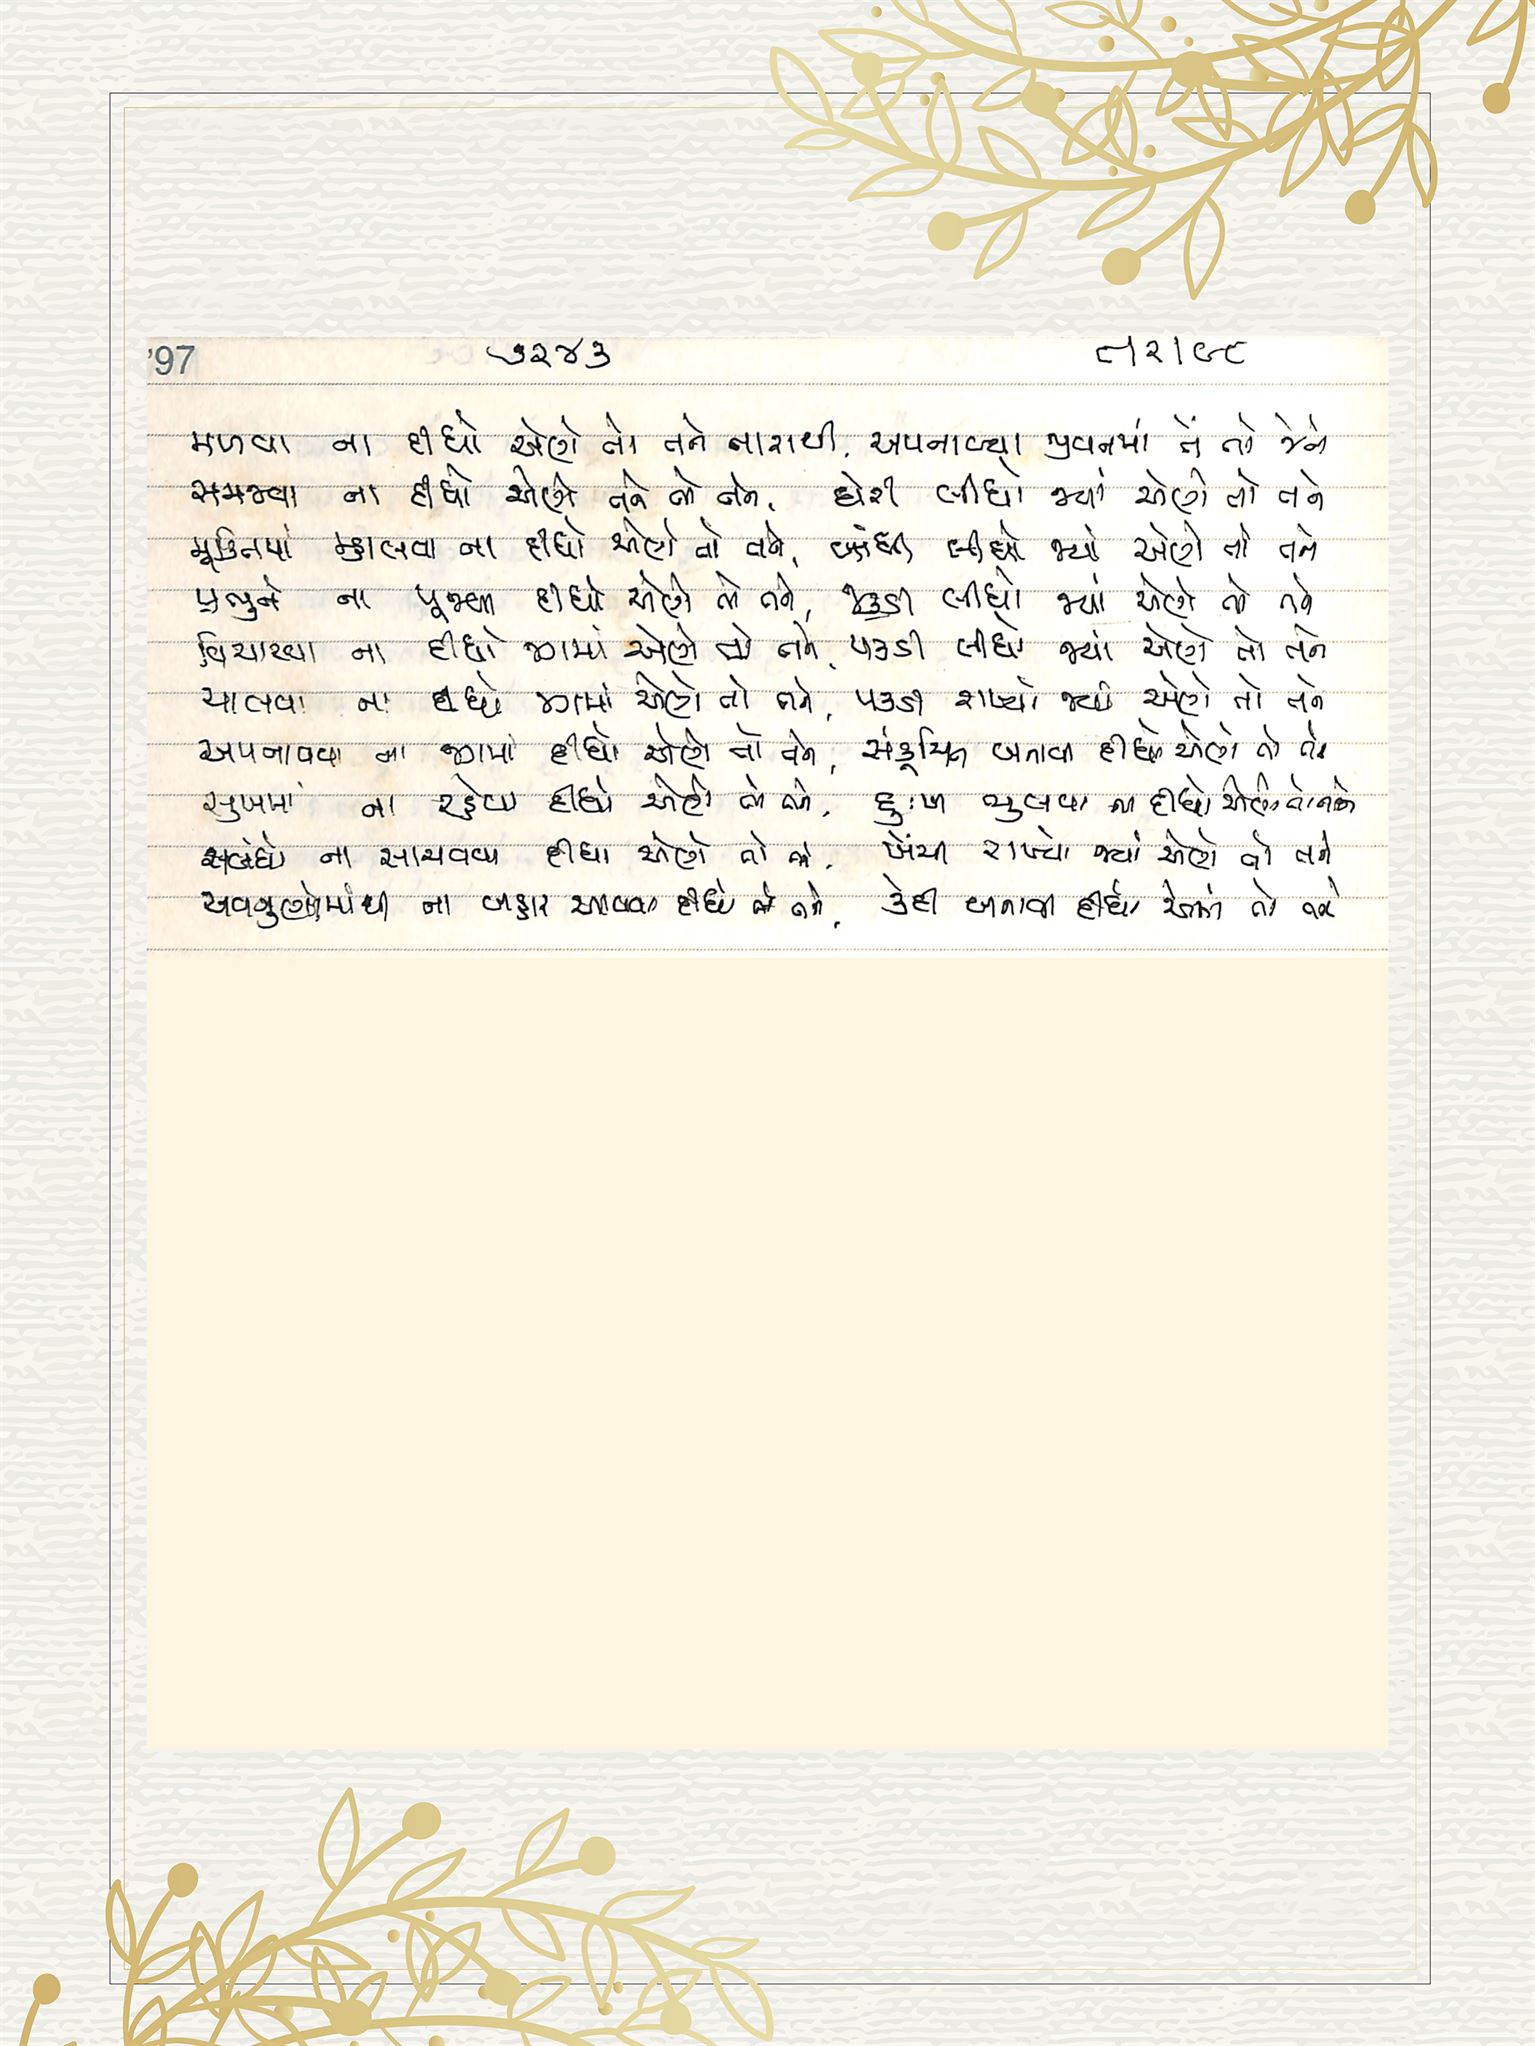 '97 ૭૨૪૩
મળવા ના દીધો એણે તો તને તારાથી, અપનાવ્યા જીવનમાં તેં તો જેને
સમજવા ના દીધો એણે તને તો તને, ઘેરી લીધો જ્યાં એણે તો તને
મુક્તિમાં મ્હાલવા ના દીધો એણે તો તને, બાંધી લીધો જ્યાં એણે તો તને
પ્રભુને ના પૂજવા દીધો એણે તો તને, જકડી લીધો જ્યાં એણે તો તને
વિચારવા ના દીધો જગમાં એણે તો તને, પકડી લીધો જ્યાં એણે તો તને
ચાલવા ના દીધો જગમાં એણે તો તને, પકડી રાખ્યો જ્યાં એણે તો તને
અપનાવવા ના જગમાં દીધો એણે તો તને, સંકુચિત બનાવી દીધો એણે તો તને
સુખમાં ના રહેવા દીધો એણે તો તને, દુઃખ ભુલવા ના દીધો એણે તો તને
સબંધો ના સાચવવા દીધા એણે તો તને, ખેંચી રાખ્યો જ્યાં એણે તો તને
અવગુણોમાંથી ના બહાર આવવા દીધો તો તને, કેદી બનાવી દીધો એણે તો તને